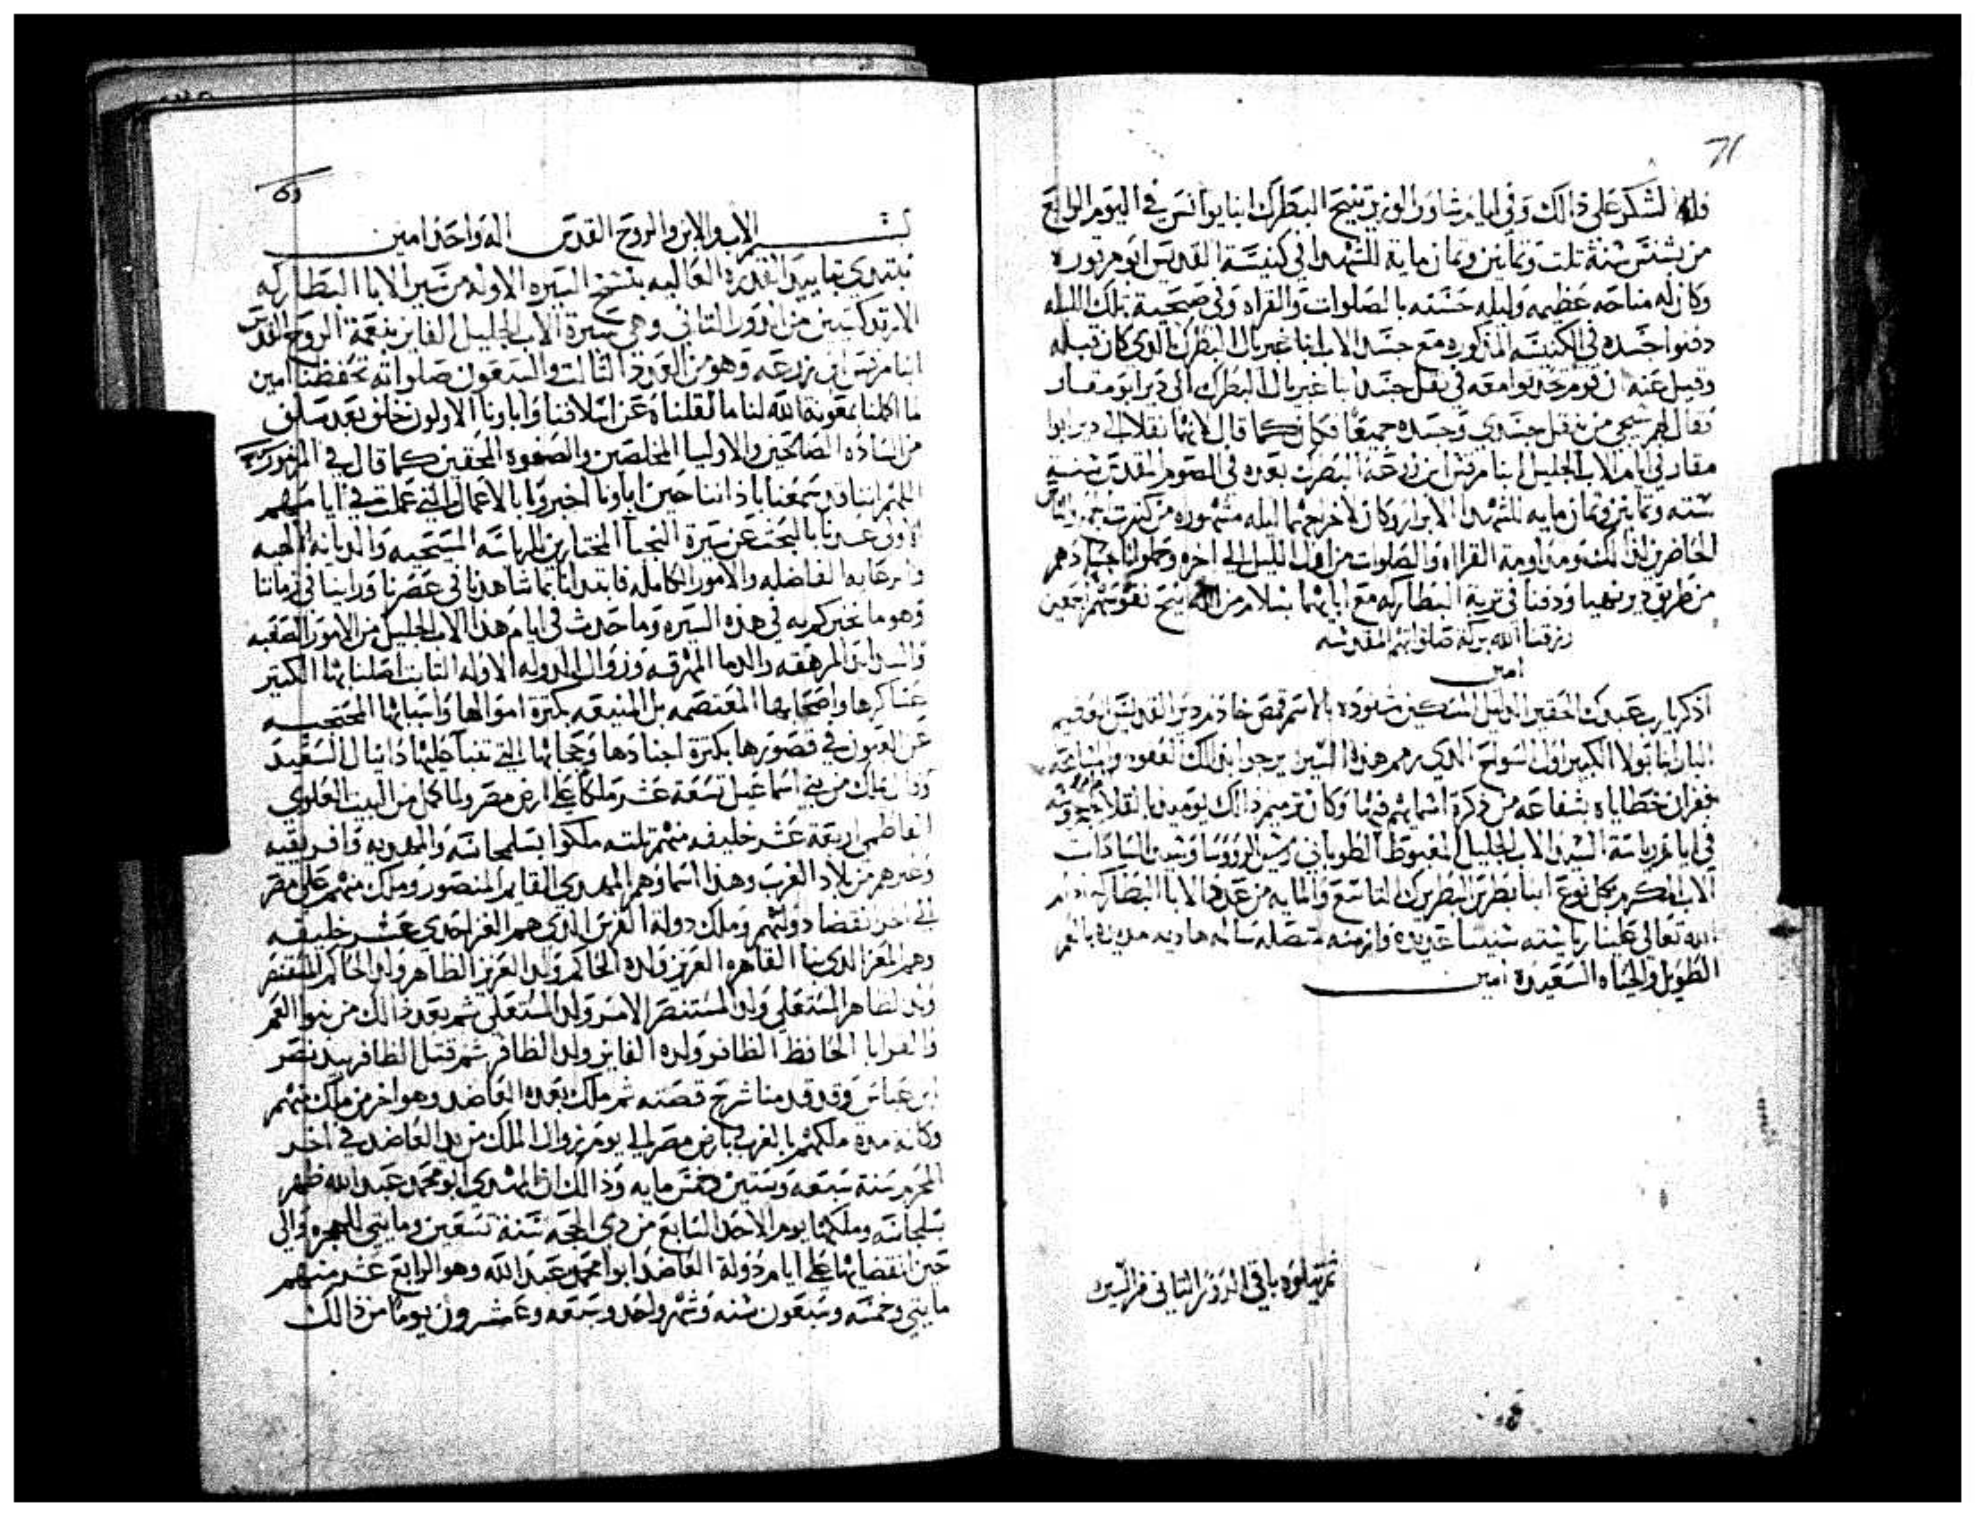 71
فله الشكر على ذالك وفي ايام شاور الوزير تنيح البطرك انبا يوانس في اليوم الرابع
من بشنس سنة تلت وتمانين وتمان ماية للشهدا في كنيسة القديس ابو مرقوره
وكان له مناحه عظيمه وليله حسنه بالصلوات والقراه وفي صحبية تلك الليله
دفنوا جسده في الكنيسه المذكوره مع جسد الاب انبا غبريال البطرك الذي كان قبله
وقيل عنه ان يوم تحدتوا معه في نقل جسد انبا غبريال البطرك الى دير ابو مقار
فقال لهم يجي من ينقل جسدي وجسده جميعا فكان كما قال لانهما نقلا الى دير ابو
مقار في ايام الاب الجليل انبا مرقس ابن زرعة البطرك بعده في الصوم المقدس سنة
سته وتمانين وتمان مايه للشهدا الابرار وكان لاخراجهما ليله مشهوره من كترت الناس
الحاضرين لذالك ومداومة القراه والصلوات من اول الليل الى اخره وحملوا اجسادهم
من طريق دير نهيا ودفنا في تربة البطاركه مع ابايهما بسلام من الله ينيح نفوسهم اجمعين
ورزقنا الله بركة صلواتهم المقدسه
امين
اذكر يارب عبدك الحقير الذليل المسكين شنوده بالاسم قمص خادم دير القديس العظيم
البار انبا بولا الكبير اول السواح الذي رمم هذه السير يرجوا بذالك لعفوه
بغفران خطاياه بشفاعه من ذكرة اسمايهم فيها وكان ترميم ذالك يوميد بالقلايه
في ايام رياسة السيد الاب الجليل المغبوط الطوباني رييس الروسا وسيد السادات
الاب المكرم بكل نوع انبا بطرس البطريرك التاسع والمايه من عدد الابا البطاركه ادام
الله تعالى علينا رياسته سنينا عديده وازمنه متصله سالمه هاديه مديده بالعمر
الطويل والحياه السعيده امين
تم يتلوه باقي الدور التاني من السير
بسم الاب والابن والروح القدس اله واحد امين
نبتدي بتاييد القدره العاليه بنسخ السيره الاوله من سير الابا البطاركه
الارتدكسيين من الدور التاني وهي سيرة الاب الجليل الفايز بنعمة الروح القدس
انبا مرقس ابن زرعه وهو من العدد التالت والسبعون صلواته تحفظنا امين
ما اكملنا بمعونة الله لنا ما نقلناه عن اسلافنا واباونا الاولون خلف بعد سلف
من الساده الصالحين والاوليا المخلصين والصفوه المحقين كما قال في المزمور
اللهم اننا قد سمعنا باذاننا حين اباونا اخبروا بالاعمال التي عملت في ايامهم
الاول عدنا بالبحث عن سيرة النجبا المختارين للرياسه المسيحيه والديانه الالهيه
والرعايه الفاضله والامور الكامله فابتدانا بما شاهدناه في عصرنا وراينا في زماننا
وهو ما نخبركم به في هذه السيره وما حدت في ايام هذا الاب الجليل من الامور الصعبه
والشدايد المرهقه والدما المهرقه وزوال الدوله الاوله التابت اصلنا بها الكتير
عساكرها واصحابها المعتصمه بل المنيعه بكترة اموالها واسبابها المحتجبه
عن العيون في قصورها بكترة اجنادها وحجابها التي تنبا عليها دانيال السعيد
وقال يملك من بني اسماعيل تسعة عشر ملكا على ارض مصر ولما كمل من البيت العلوي
الفاطمي اربعة عشر خليفه منهم تلته ملكوا بسلجماسه والمهديه وافريقيه
وغيرهم من بلاد الغرب وهذا اسماوهم المهدي القايم المنصور وملك منهم على مصر
الى اخر انقضا دولتهم وملك دولة الغز الذي هم الغز احدى عشر خليفه
وهم المعز الذي بنا القاهره العزيز ولده الحاكم ولد العزيز الظاهر ولد الحاكم المستنصر
ولد الظاهر المستعلي ولد المستنصر الامر ولد المستعلي تم بعد ذالك من بنو العم
والقرابا الحافظ الظافر ولده الفايز ولد الظافر تم قتل الظافر بيد نصر
ابن عباس وقد قدمنا شرح قصته تم ملك بعده العاضد وهو اخر من ملك منهم
وكانه مدة ملكهم بالغرب بارض مصر الى يوم زوال الملك من يد العاضد في اخر
المحرم سنة سبعه وستين وخمس مايه وذالك ان المهدي ابو محمد عبد الله ظهر
بسلجماسه وملكها يوم الاحد السابع من دي الحجه سنة تسعين ومايتي للهجره والى
حين انقضايها على ايام دولة العاضد ابوا محمد عبد الله وهو الرابع عشر منهم
مايتي وخمسه وسبعون سنه وشهر واحد وسبعه وعشرون يوما من ذالك